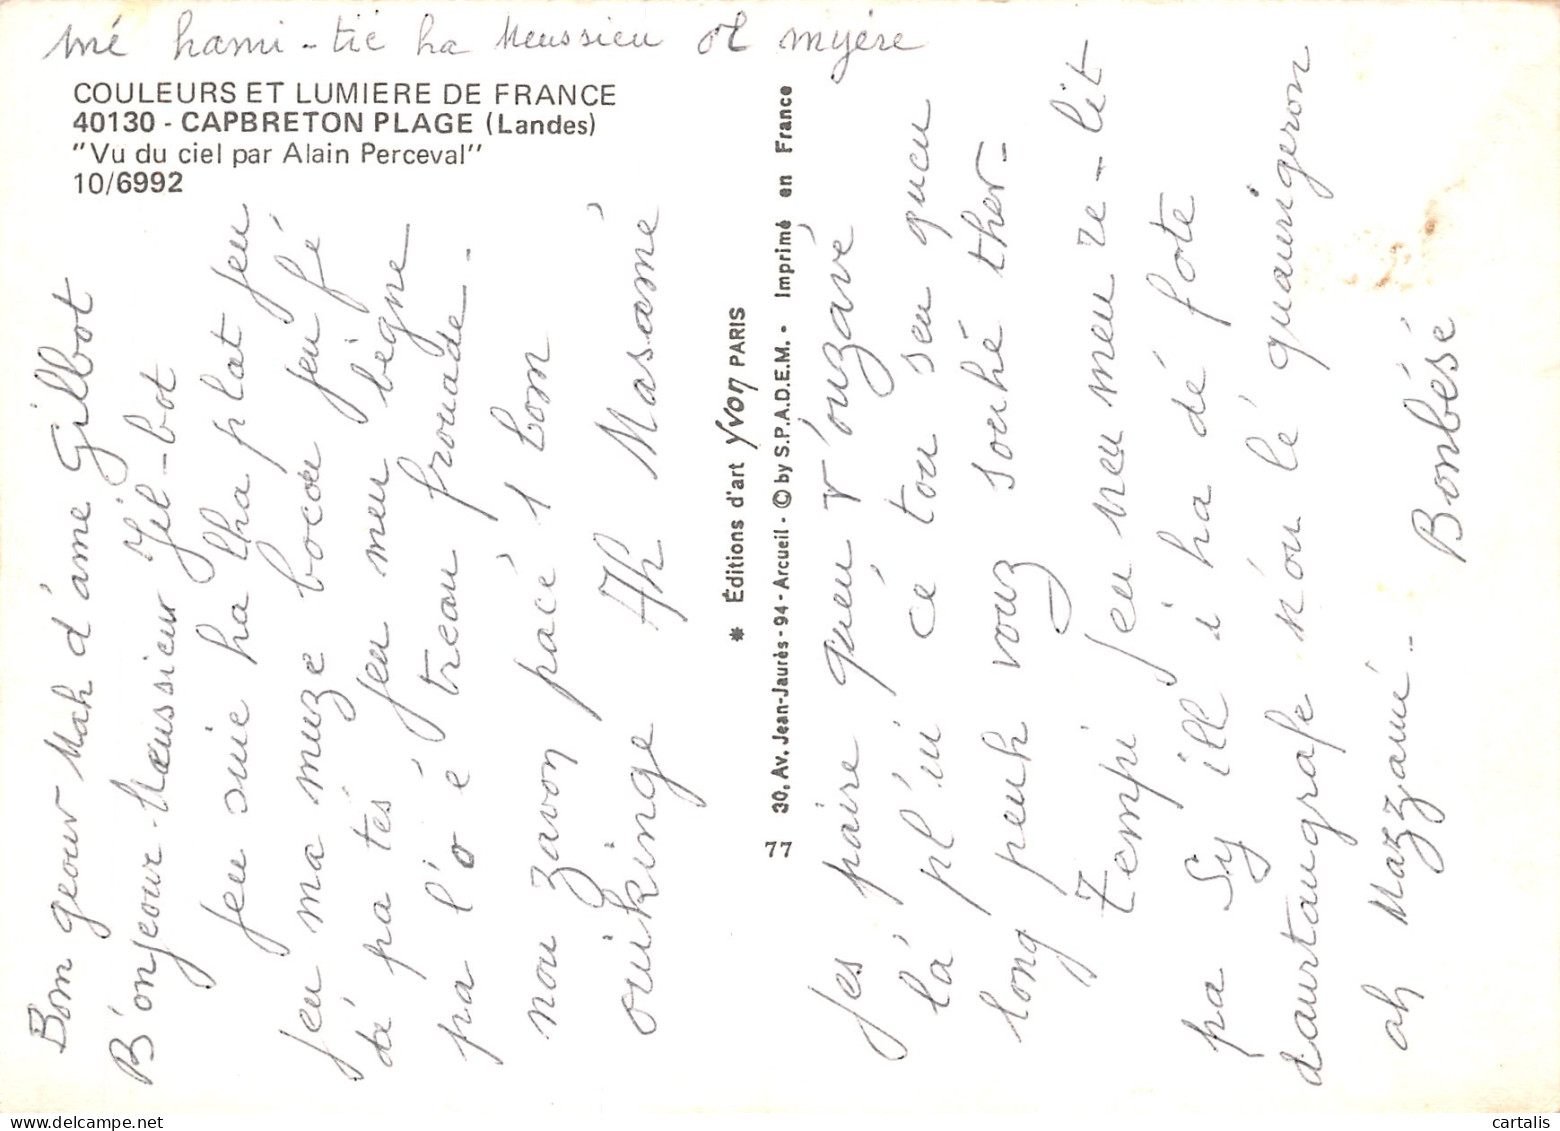 mé hami-tié ha Meussieu et myère
COULEURS ET LUMIERE DE FRANCE
40130 - CAPBRETON PLAGE (Landes)
"Vu du ciel par Alain Perceval"
10/6992
Bom geour Mah d'ame Gilbot
B'onjeour-Meussieur Jil-bot
jeu suie ha lha plat jeu
jeu ma muze bocou jeu fé
dé pa tés jeu meu bègne
pa l'o é treau frouade.
nou zavon pacé 1 bom
ouikinge Ah Masamé
* Éditions d'art YVON PARIS
30, Av. Jean-Jaurès - 94 - Arcueil - © by S.P.A.D.E.M. • Imprimé en France
77
Jes paire queu v'ouzavé
là pl'ui cé tou seu queu
long peuh vouz souhé ther-
Tempi jeu neu meu re-lit
pa Sy ill i ha dé fote
daurtaugrafe n'ou lé quaurigeron
ah Mazzamé.. Bonbésé
cartalis